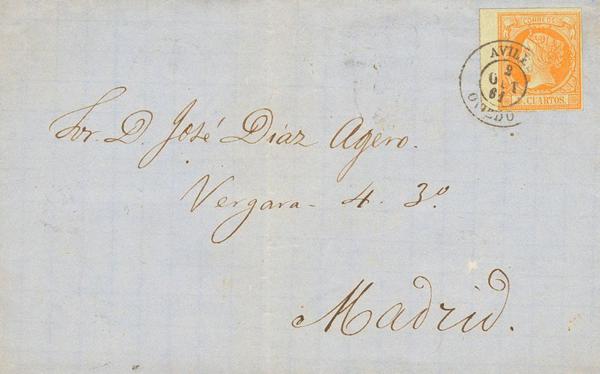 CORREOS
CUARTOS.
AVILES
9
OCT
61
OVIEDO
Sor. D. José Díaz Agero.
Vergara - 4. 3.º
Madrid.